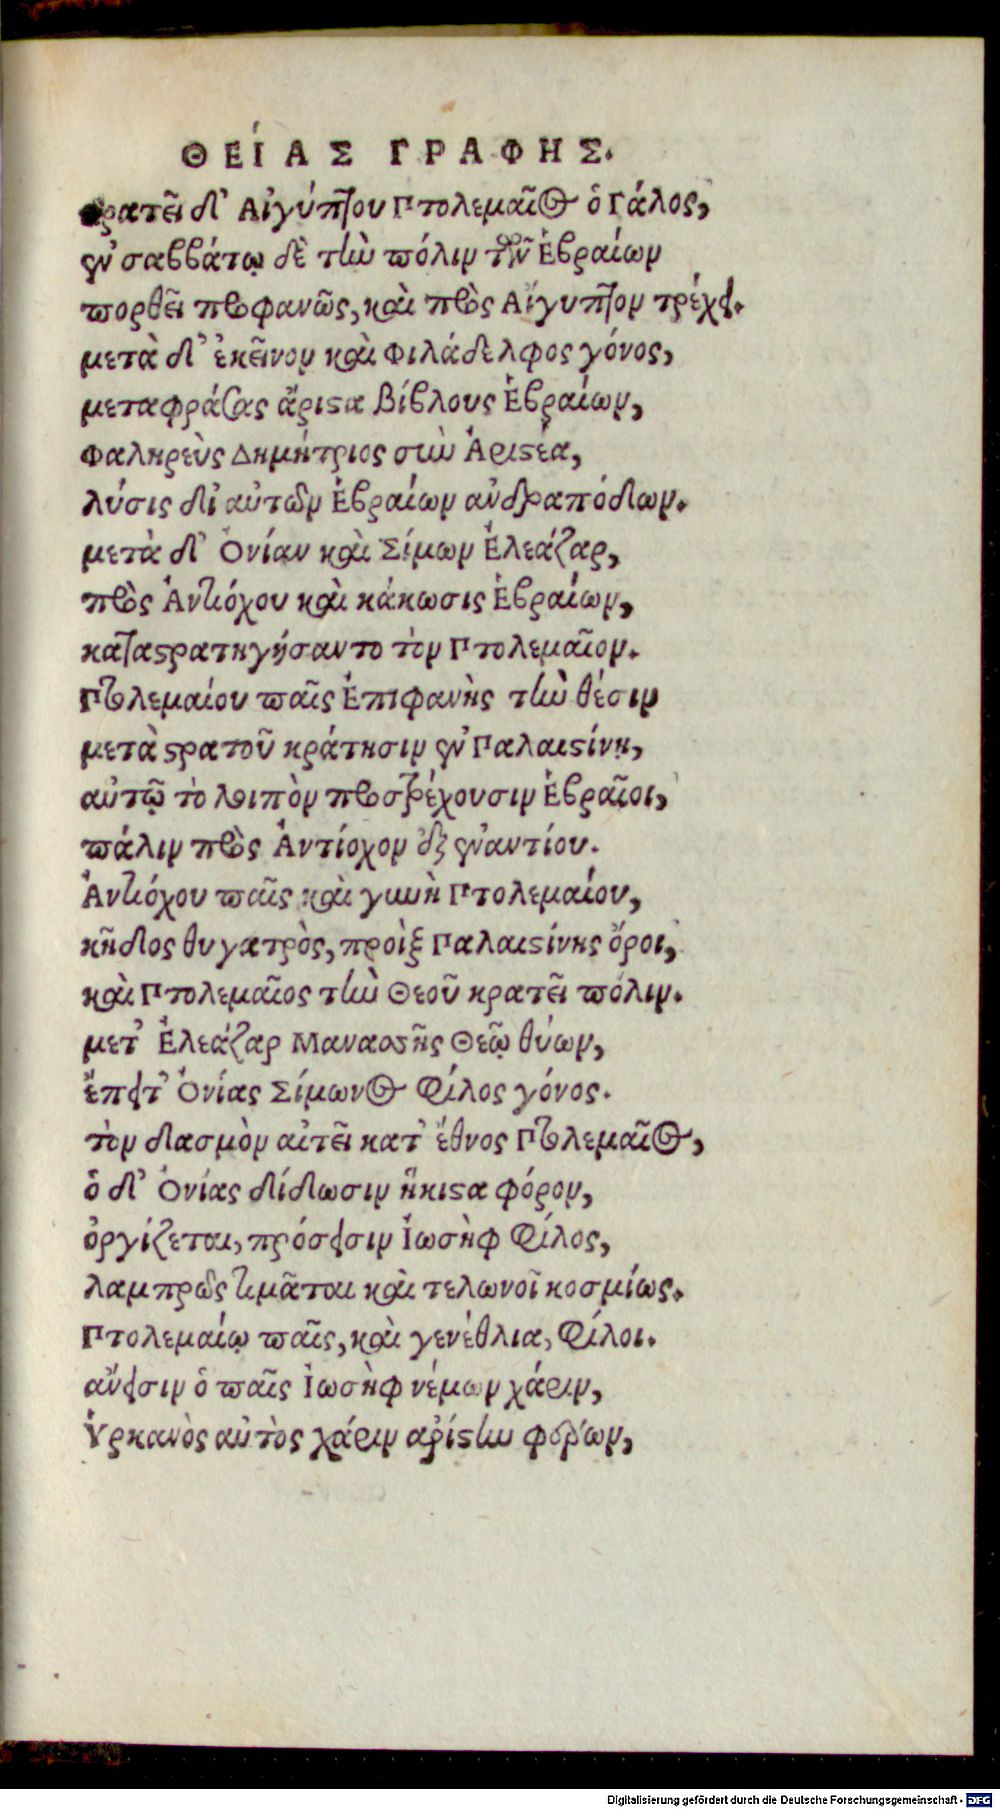 ΘΕΊΑΣ ΓΡΑΦΗΣ.
κρατεῖ δ' Αἰγύπτου Πτολεμαῖος ὁ Γάλος,
ἐν σαββάτῳ δὲ τὴν πόλιν τῶν Ἑβραίων
πορθεῖ προφανῶς, καὶ πρὸς Αἴγυπτον τρέχει.
μετὰ δ' ἐκεῖνον καὶ Φιλάδελφος γόνος,
μεταφράσας ἄριστα βίβλους Ἑβραίων,
Φαληρεὺς Δημήτριος σὺν Ἀριστέα,
λύσις δι' αὐτῶν Ἑβραίων ἀνδραπόδων.
μετὰ δ' Ὀνίαν καὶ Σίμων Ἐλεάζαρ,
πρὸς Ἀντιόχου καὶ κάκωσις Ἑβραίων,
καταστρατηγήσαντο τὸν Πτολεμαῖον.
Πτολεμαίου παῖς Ἐπιφανὴς τὴν θέσιν
μετὰ στρατοῦ κράτησιν ἐν Παλαιστίνῃ,
αὐτῷ τὸ λοιπὸν προστρέχουσιν Ἑβραῖοι,
πάλιν πρὸς Ἀντίοχον ἐξ ἐναντίου.
Ἀντιόχου παῖς καὶ γυνὴ Πτολεμαίου,
κῆδος θυγατρὸς, προὶξ Παλαιστίνης ὅροι,
καὶ Πτολεμαῖος τὴν Θεοῦ κρατεῖ πόλιν.
μετ' Ἐλεάζαρ Μανασσῆς Θεῷ θύων,
ἔπειτ' Ὀνίας Σίμωνος φίλος γόνος.
τὸν δασμὸν αἰτεῖ κατ' ἔθνος Πτολεμαῖος,
ὁ δ' Ὀνίας δίδωσιν ἥκιστα φόρον,
ὀργίζεται, πρόσεισιν Ἰωσὴφ φίλος,
λαμπρῶς τιμᾶται καὶ τελωνοῖ κοσμίως.
Πτολεμαίῳ παῖς, καὶ γενέθλια, φίλοι.
ἄνεισιν ὁ παῖς Ἰωσὴφ νέμων χάριν,
Ὑρκανὸς αὐτὸς χάριν ἀρίστην φέρων,
Digitalisierung gefördert durch die Deutsche Forschungsgemeinschaft - DFG